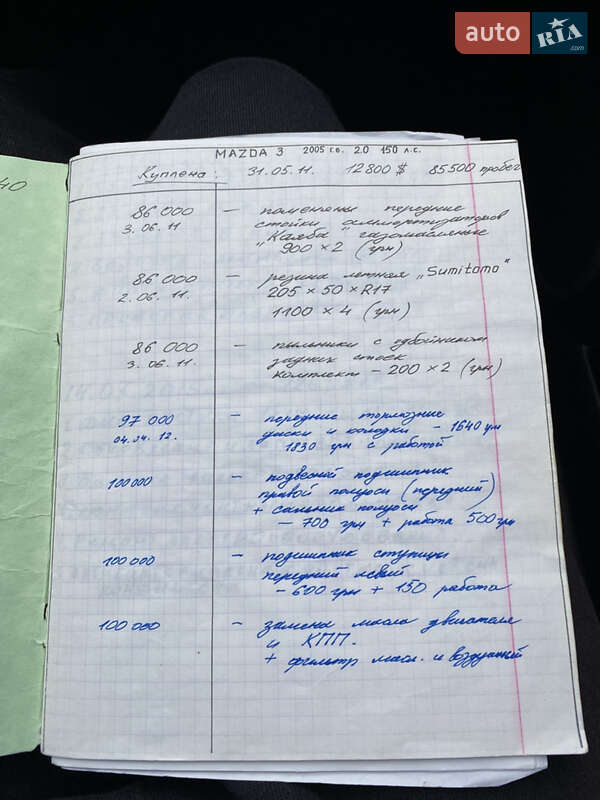 auto RIA .com
40
MAZDA 3 2005 г.в. 2.0 150 л.с.
Куплена: 31.05.11. 12800 $ 85500 пробег
86 000 — поменены передние
3.06.11 стойки аммортизаторов
„Каяба" газомасляные
900 × 2 (грн)
86 000 — резина летная „Sumitomo"
2.06.11. 205 × 50 × R17
1100 × 4 (грн)
86 000 — пыльники с отбойником
3.06.11. задних стоек
комплект – 200 × 2 (грн)
97 000 — передние тормозние
04.04.12. диски и колодки – 1640 грн
1830 грн с работой
100 000 — подвесной подшипник
правой полуоси (передний)
+ сальник полуоси
– 700 грн + работа 500 грн
100 000 — подшипник ступицы
передний левый
– 600 грн + 150 работа
100 000 — замена масла двигателя
и КПП.
+ фильтр масл. и воздушный